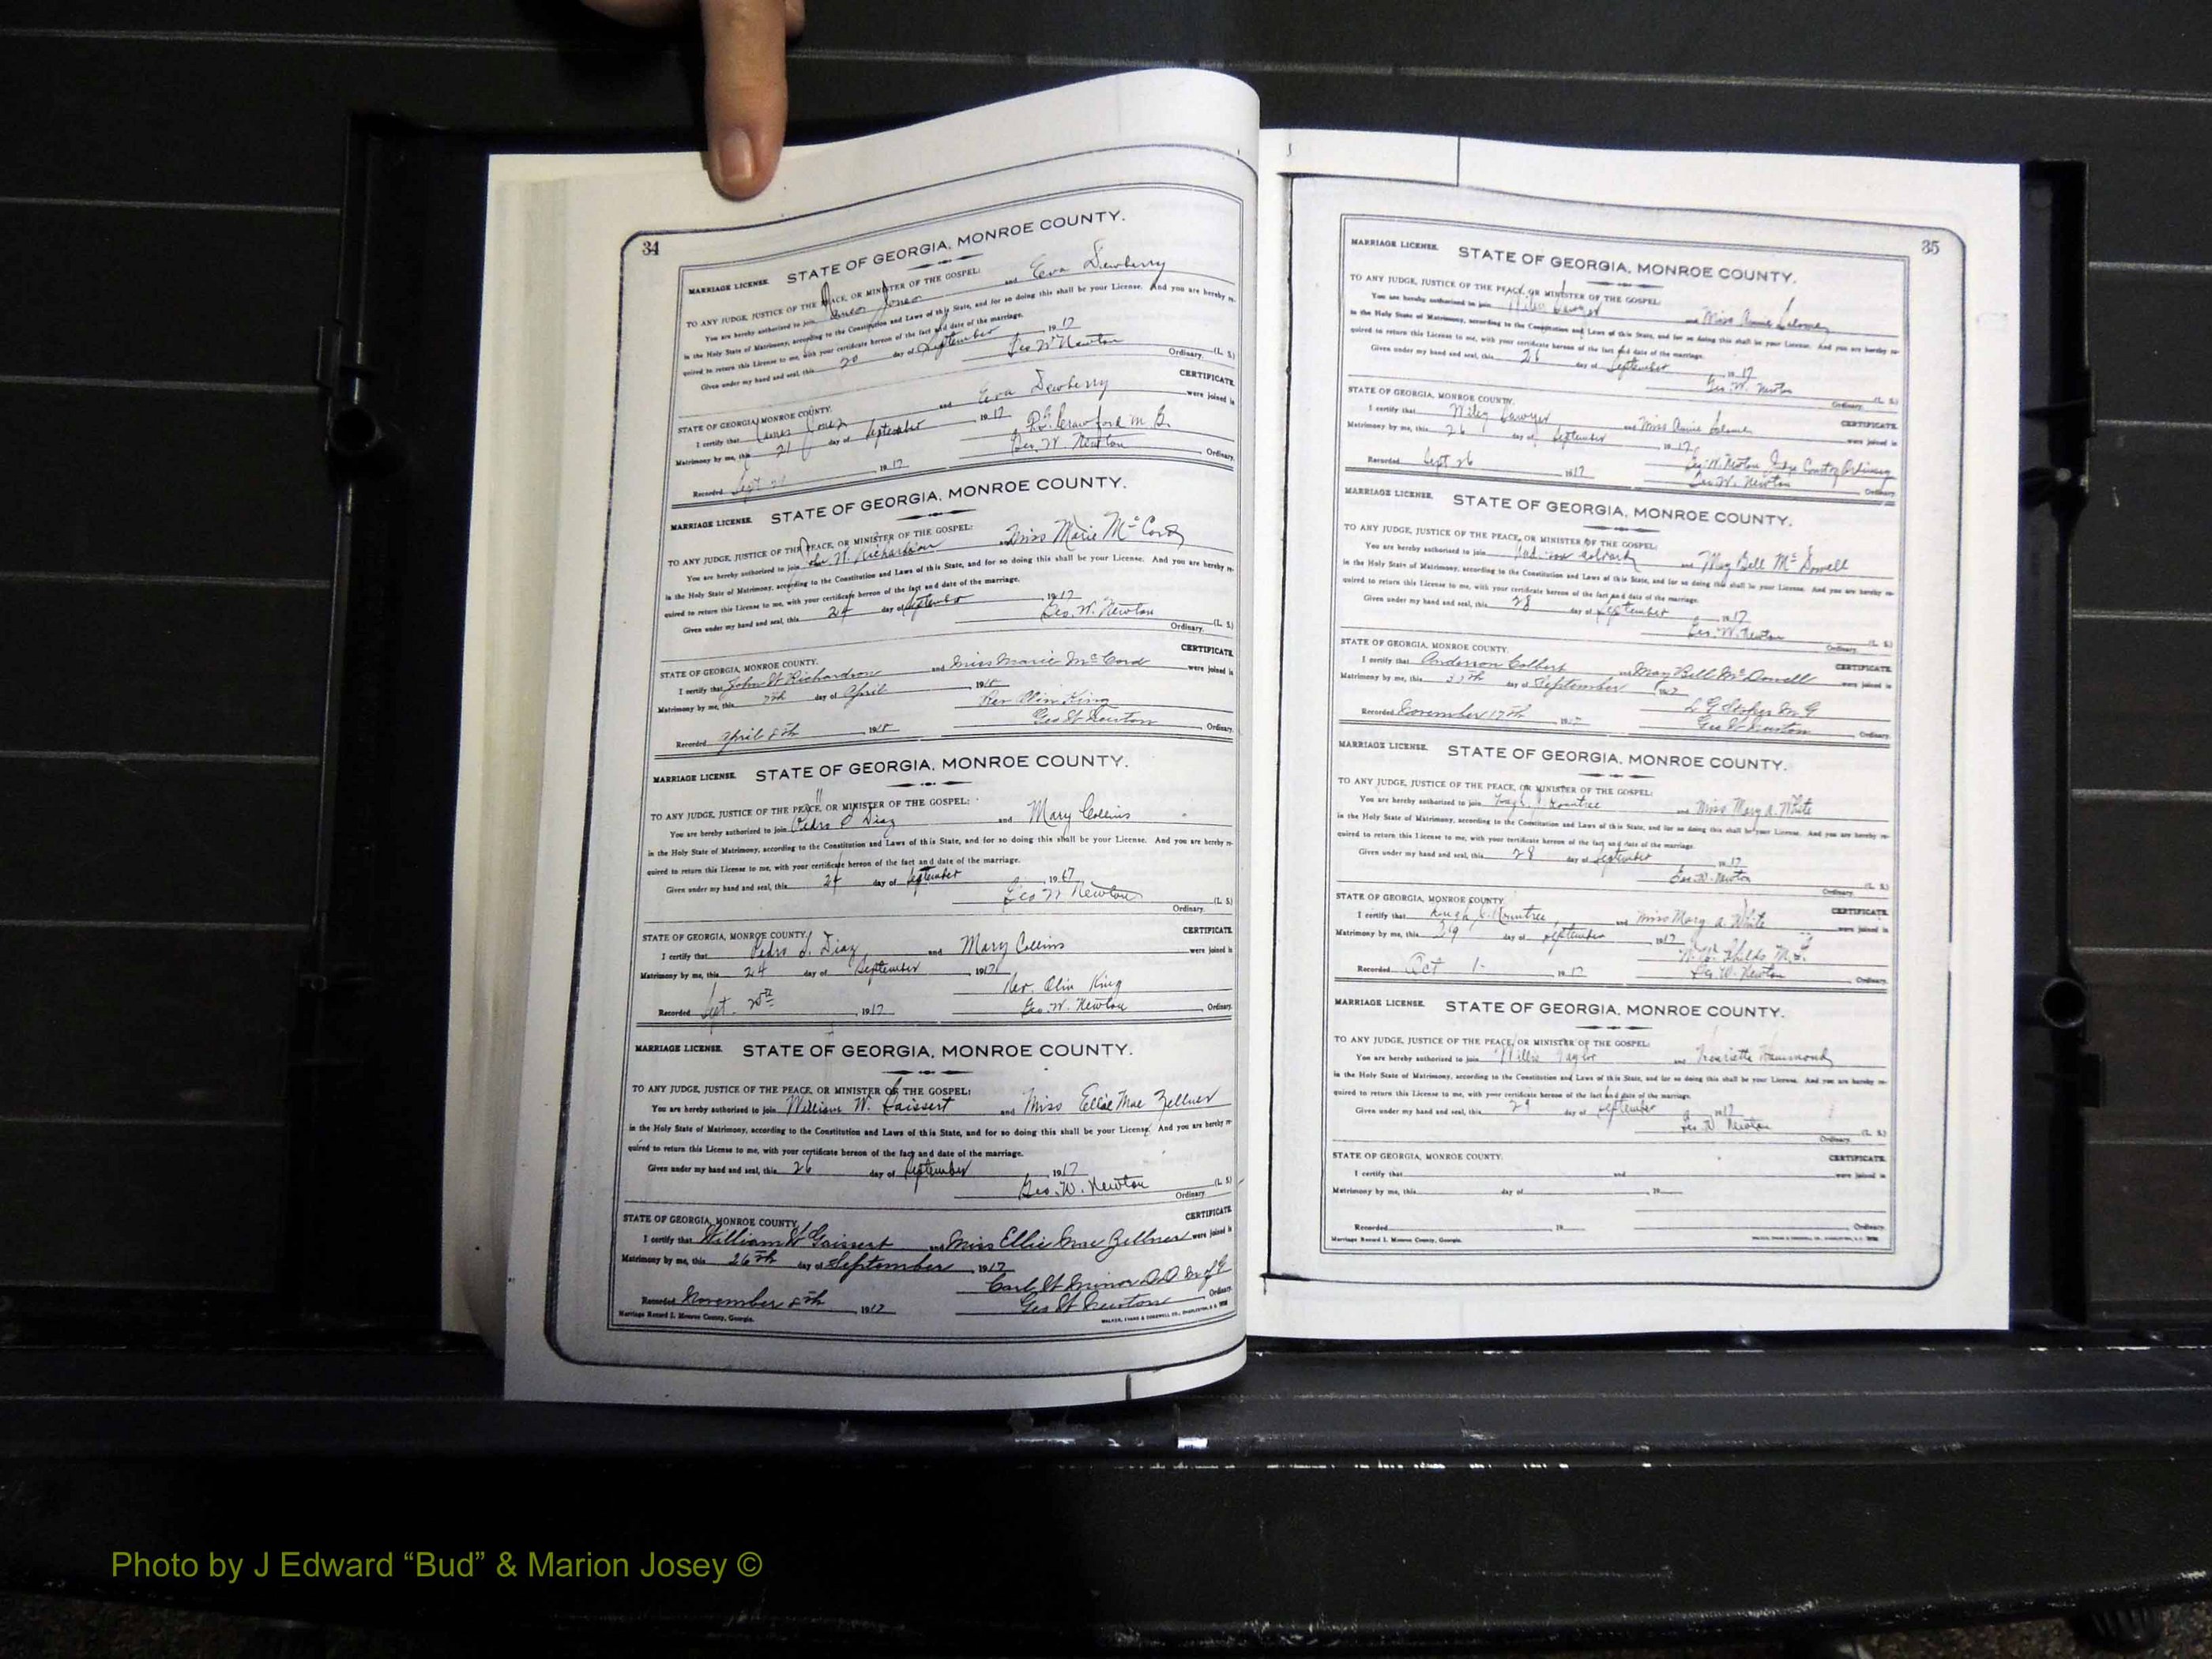 34
MARRIAGE LICENSE. STATE OF GEORGIA, MONROE COUNTY.
TO ANY JUDGE, JUSTICE OF THE PEACE, OR MINISTER OF THE GOSPEL:
You are hereby authorized to join James Jones and Eva Dewberry
in the Holy State of Matrimony, according to the Constitution and Laws of this State, and for so doing this shall be your License. And you are hereby re-
quired to return this License to me, with your certificate hereon of the fact and date of the marriage.
Given under my hand and seal, this 20 day of September 1917
Geo W Newton (L. S.)
Ordinary.
STATE OF GEORGIA, MONROE COUNTY. CERTIFICATE.
I certify that James Jones and Eva Dewberry were joined in
Matrimony by me, this 21 day of September 1917
Crawford M. G.
Recorded Sept 1917 Geo. W. Newton Ordinary.
MARRIAGE LICENSE. STATE OF GEORGIA, MONROE COUNTY.
TO ANY JUDGE, JUSTICE OF THE PEACE, OR MINISTER OF THE GOSPEL:
You are hereby authorized to join John W. Richardson and Miss Marie McCord
in the Holy State of Matrimony, according to the Constitution and Laws of this State, and for so doing this shall be your License. And you are hereby re-
quired to return this License to me, with your certificate hereon of the fact and date of the marriage.
Given under my hand and seal, this 24 day of September 1917
Geo. W. Newton (L. S.)
Ordinary.
STATE OF GEORGIA, MONROE COUNTY. CERTIFICATE.
I certify that John W Richardson and Miss Marie McCord were joined in
Matrimony by me, this 7th day of April 1918
Rev Olin King
Recorded April 8th 1918 Geo W Newton Ordinary.
MARRIAGE LICENSE. STATE OF GEORGIA, MONROE COUNTY.
TO ANY JUDGE, JUSTICE OF THE PEACE, OR MINISTER OF THE GOSPEL:
You are hereby authorized to join Pedro Diaz and Mary Collins
in the Holy State of Matrimony, according to the Constitution and Laws of this State, and for so doing this shall be your License. And you are hereby re-
quired to return this License to me, with your certificate hereon of the fact and date of the marriage.
Given under my hand and seal, this 24 day of September 1917
Geo W Newton (L. S.)
Ordinary.
STATE OF GEORGIA, MONROE COUNTY. CERTIFICATE.
I certify that Pedro S. Diaz and Mary Collins were joined in
Matrimony by me, this 24 day of September, 1917
Rev. Olin King
Recorded Sept. 25th, 1917 Geo. W. Newton, Ordinary.
MARRIAGE LICENSE. STATE OF GEORGIA, MONROE COUNTY.
TO ANY JUDGE, JUSTICE OF THE PEACE, OR MINISTER OF THE GOSPEL:
You are hereby authorized to join William W. Gaissert and Miss Ellie Mae Zellner
in the Holy State of Matrimony, according to the Constitution and Laws of this State, and for so doing this shall be your License. And you are hereby re-
quired to return this License to me, with your certificate hereon of the fact and date of the marriage.
Given under my hand and seal, this 26 day of September, 1917
Geo. W. Newton (L. S.)
Ordinary.
STATE OF GEORGIA, MONROE COUNTY. CERTIFICATE.
I certify that William W Gaissert and Miss Ellie Mae Zellner were joined in
Matrimony by me, this 26th day of September, 1917
Carl W Minor D.D. M of G
Recorded November 8th, 1917 Geo W Newton Ordinary.
Marriage Record I. Monroe County, Georgia. WALKER, EVANS & COGSWELL CO., CHARLESTON, S. C.
35
MARRIAGE LICENSE. STATE OF GEORGIA, MONROE COUNTY.
TO ANY JUDGE, JUSTICE OF THE PEACE, OR MINISTER OF THE GOSPEL:
You are hereby authorized to join Wiley Sawyer and Miss Annie
in the Holy State of Matrimony, according to the Constitution and Laws of this State, and for so doing this shall be your License. And you are hereby re-
quired to return this License to me, with your certificate hereon of the fact and date of the marriage.
Given under my hand and seal, this 26 day of September 1917
Geo. W. Newton (L. S.)
Ordinary.
STATE OF GEORGIA, MONROE COUNTY. CERTIFICATE.
I certify that Wiley Sawyer and Miss Annie were joined in
Matrimony by me, this 26 day of September 1917
Geo. W. Newton, Judge Court of Ordinary
Recorded Sept 26 1917 Geo. W. Newton Ordinary.
MARRIAGE LICENSE. STATE OF GEORGIA, MONROE COUNTY.
TO ANY JUDGE, JUSTICE OF THE PEACE, OR MINISTER OF THE GOSPEL:
You are hereby authorized to join Anderson and May Bell McDowell
in the Holy State of Matrimony, according to the Constitution and Laws of this State, and for so doing this shall be your License. And you are hereby re-
quired to return this License to me, with your certificate hereon of the fact and date of the marriage.
Given under my hand and seal, this 28 day of September 1917
Geo. W. Newton (L. S.)
Ordinary.
STATE OF GEORGIA, MONROE COUNTY. CERTIFICATE.
I certify that Anderson Colbert and May Bell McDowell were joined in
Matrimony by me, this day of September 1917
L G M G
Recorded November 17th 1917 Geo W Newton Ordinary.
MARRIAGE LICENSE. STATE OF GEORGIA, MONROE COUNTY.
TO ANY JUDGE, JUSTICE OF THE PEACE, OR MINISTER OF THE GOSPEL:
You are hereby authorized to join Hugh Rountree and Miss Mary A. White
in the Holy State of Matrimony, according to the Constitution and Laws of this State, and for so doing this shall be your License. And you are hereby re-
quired to return this License to me, with your certificate hereon of the fact and date of the marriage.
Given under my hand and seal, this 28 day of September 1917
Geo. W. Newton (L. S.)
Ordinary.
STATE OF GEORGIA, MONROE COUNTY. CERTIFICATE.
I certify that Hugh Rountree, and Miss Mary A. White were joined in
Matrimony by me, this 29 day of September 1917
Childs M. G.
Recorded Oct 1 1917 Geo. W. Newton Ordinary.
MARRIAGE LICENSE. STATE OF GEORGIA, MONROE COUNTY.
TO ANY JUDGE, JUSTICE OF THE PEACE, OR MINISTER OF THE GOSPEL:
You are hereby authorized to join Willie Taylor and Henrietta Hammond
in the Holy State of Matrimony, according to the Constitution and Laws of this State, and for so doing this shall be your License. And you are hereby re-
quired to return this License to me, with your certificate hereon of the fact and date of the marriage.
Given under my hand and seal, this 29 day of September 1917
Geo. W Newton (L. S.)
Ordinary.
STATE OF GEORGIA, MONROE COUNTY. CERTIFICATE.
I certify that and were joined in
Matrimony by me, this day of , 19
Recorded 19 Ordinary.
Marriage Record I. Monroe County, Georgia.
Photo by J Edward “Bud” & Marion Josey ©